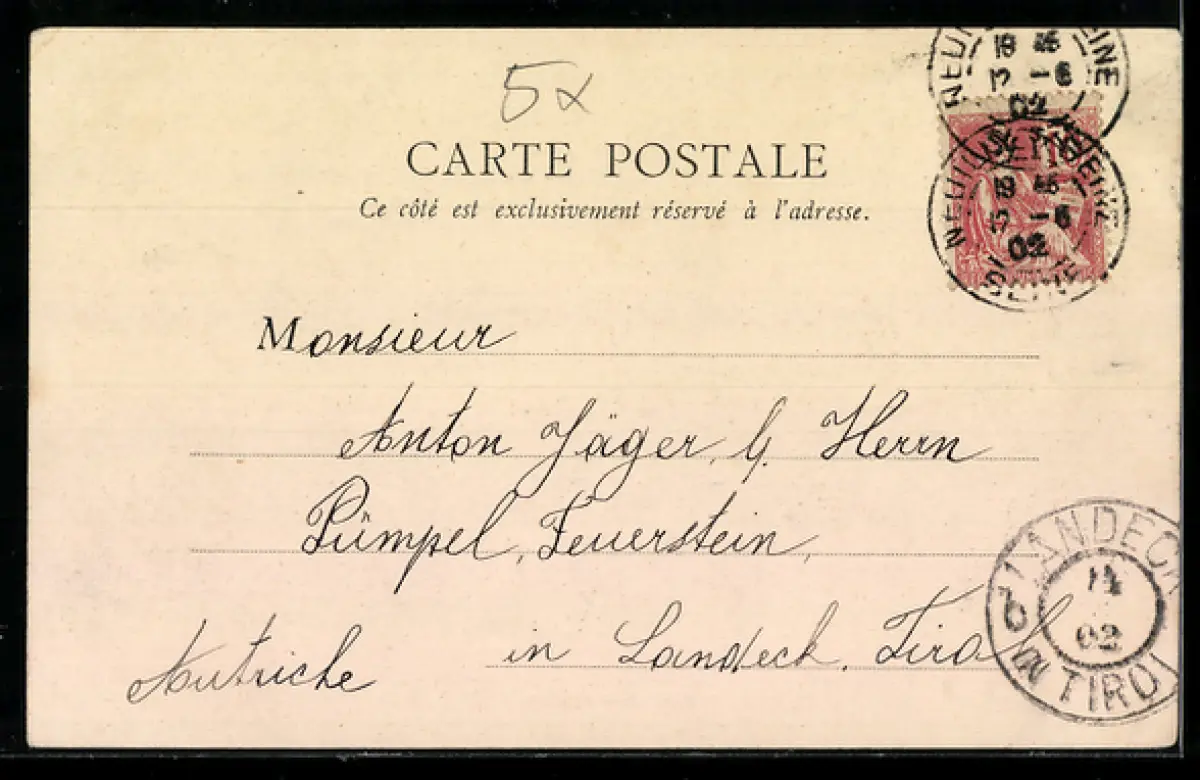 5x
CARTE POSTALE
Ce côté est exclusivement réservé à l'adresse.
NEUILLY SEINE
18 45
13 -6
02
NEUILLY
SEINE
18 45
-6
02
Monsieur
Anton Jäger, b. Herrn
Pümpel, Feuerstein,
in Landeck, Tirol
Autriche
LANDECK
14
02
IN TIROL